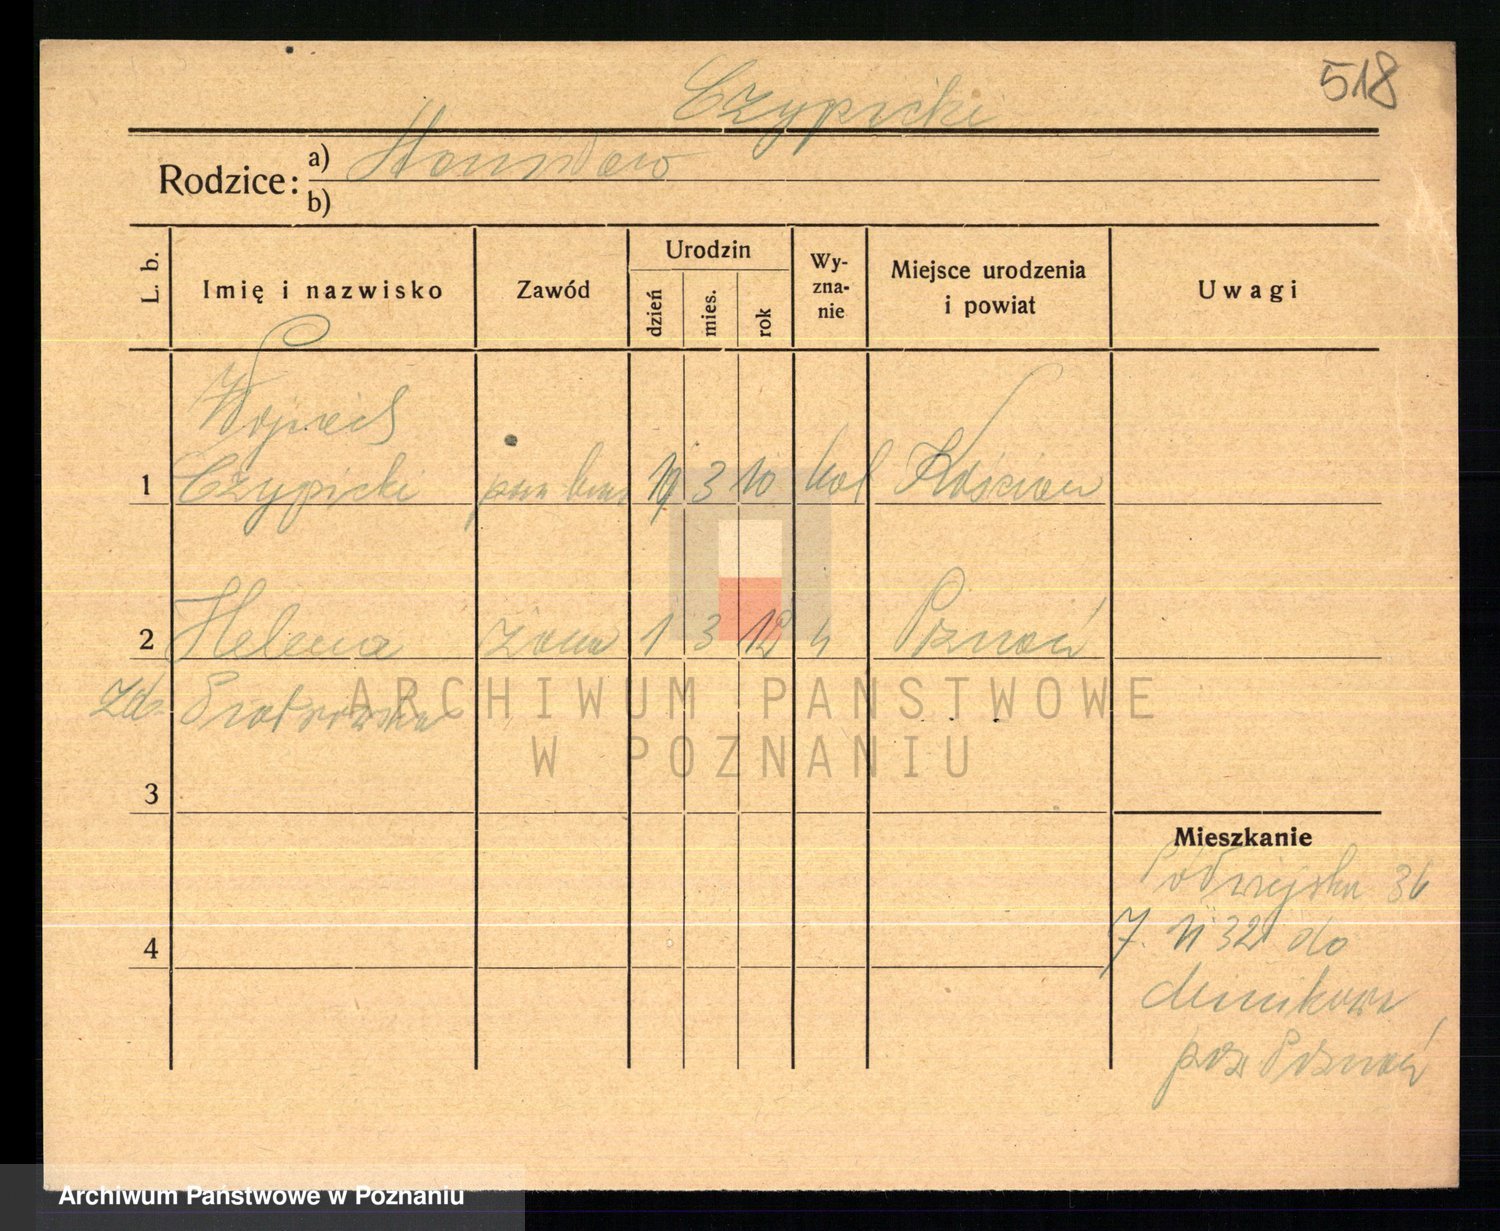 518
Czypicki
Rodzice: a) Stanisław
b)
L. b.
Imię i nazwisko
Zawód
Urodzin
dzień
mies.
rok
Wy-
zna-
nie
Miejsce urodzenia
i powiat
Uwagi
Wojciech
1 Czypicki 19 3 10 kat Kościan
2 Helena żona 1 3 12 Poznań
zd. Piotrowska
3
4
Mieszkanie
Półwiejska 36
7. 11 32 do
pow Poznań
ARCHIWUM PAŃSTWOWE
W POZNANIU
Archiwum Państwowe w Poznaniu